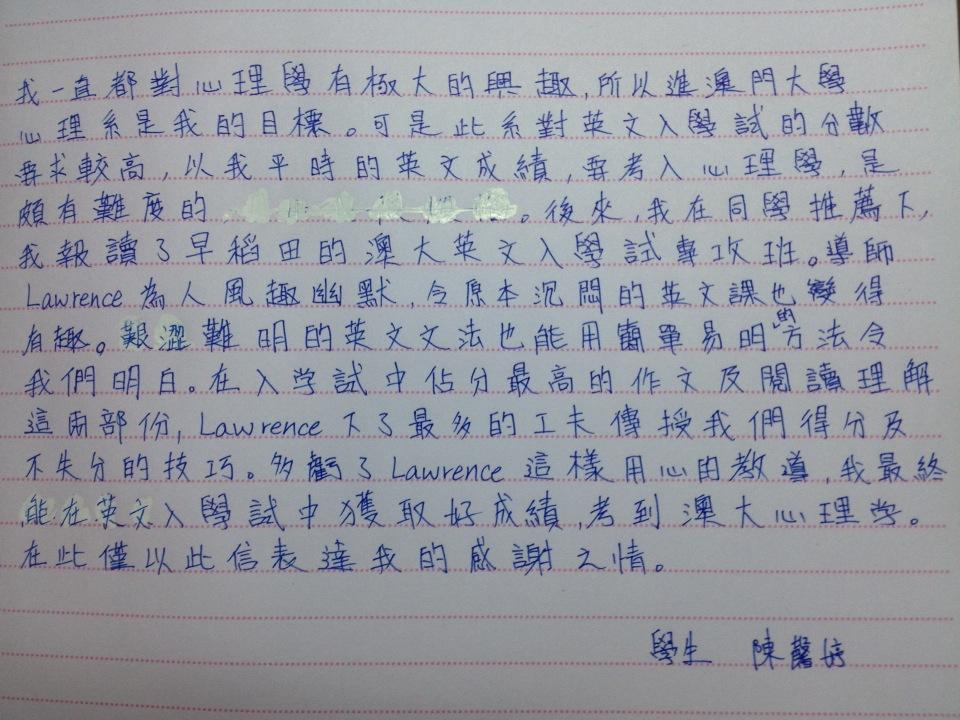 我一直都對心理學有極大的興趣,所以進澳門大學
心理系是我的目標。可是此系對英文入學試的分數
要求較高,以我平時的英文成績,要考入心理學,是
頗有難度的。後來,我在同學推薦下,
我報讀了早稻田的澳大英文入學試專攻班。導師
Lawrence為人風趣幽默,令原本沉悶的英文課也變得
有趣。艱澀難明的英文文法也能用簡單易明的方法令
我們明白。在入学試中佔分最高的作文及閱讀理解
這兩部份,Lawrence下了最多的工夫傳授我們得分及
不失分的技巧。多虧了Lawrence這樣用心的教導,我最終
能在英文入學試中獲取好成績,考到澳大心理学。
在此僅以此信表達我的感謝之情。
學生 陳馨婷